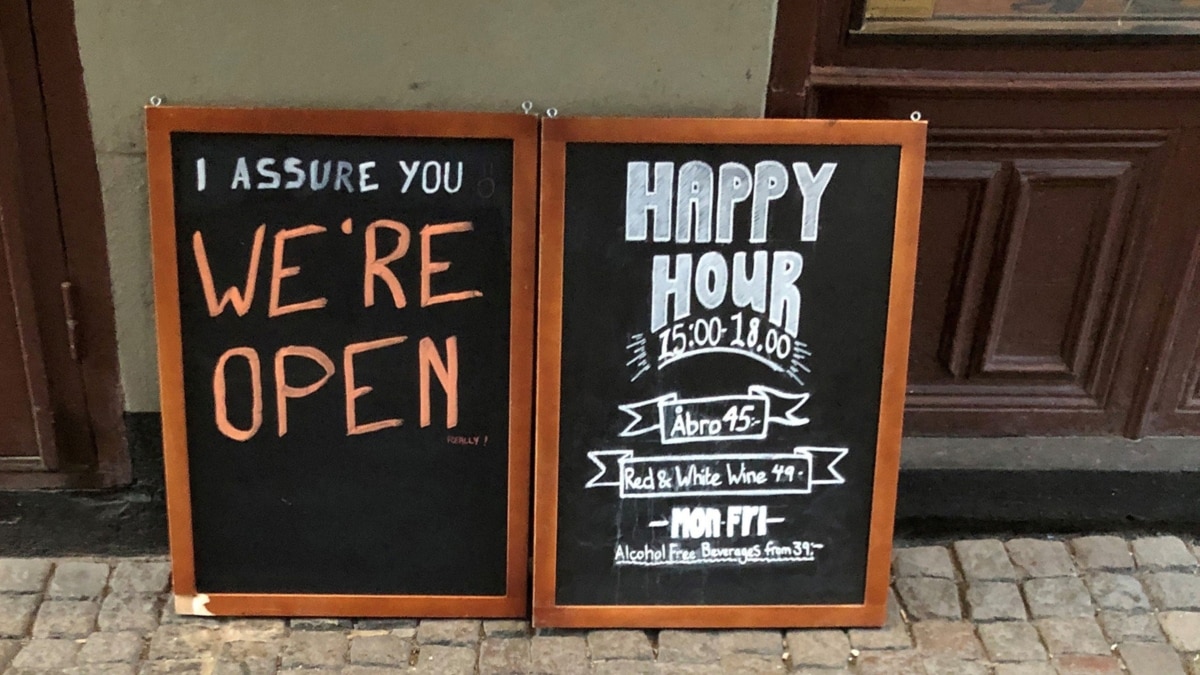 I ASSURE YOU
WE'RE
OPEN
TOTALLY!
HAPPY
HOUR
15:00-18.00
Åbro 45:-
Red & White Wine 49:-
-MON-FRI-
Alcohol Free Beverages from 39:-